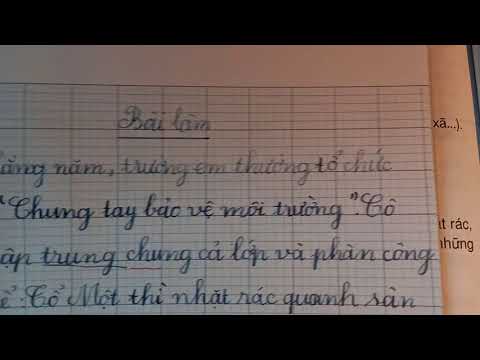 Bài làm
xã...).
ằng năm, trường em thường tổ chức
"Chung tay bảo vệ môi trường". Cô
t rác,
ập trung chung cả lớp và phân công
những
ể: Tổ Một thì nhặt rác quanh sân